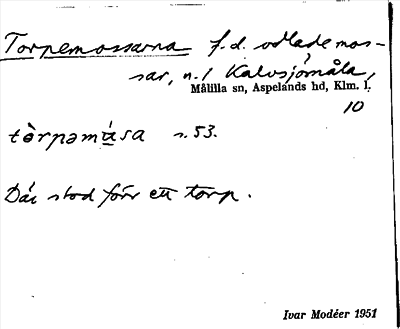 Torpemossarna f.d. odlade mos-
sar, n. 1 Kalvsjömåla,
Målilla sn, Aspelands hd, Klm. l.
10
tèrpamása s. 53.
Där stod förr ett torp.
Ivar Modéer 1951